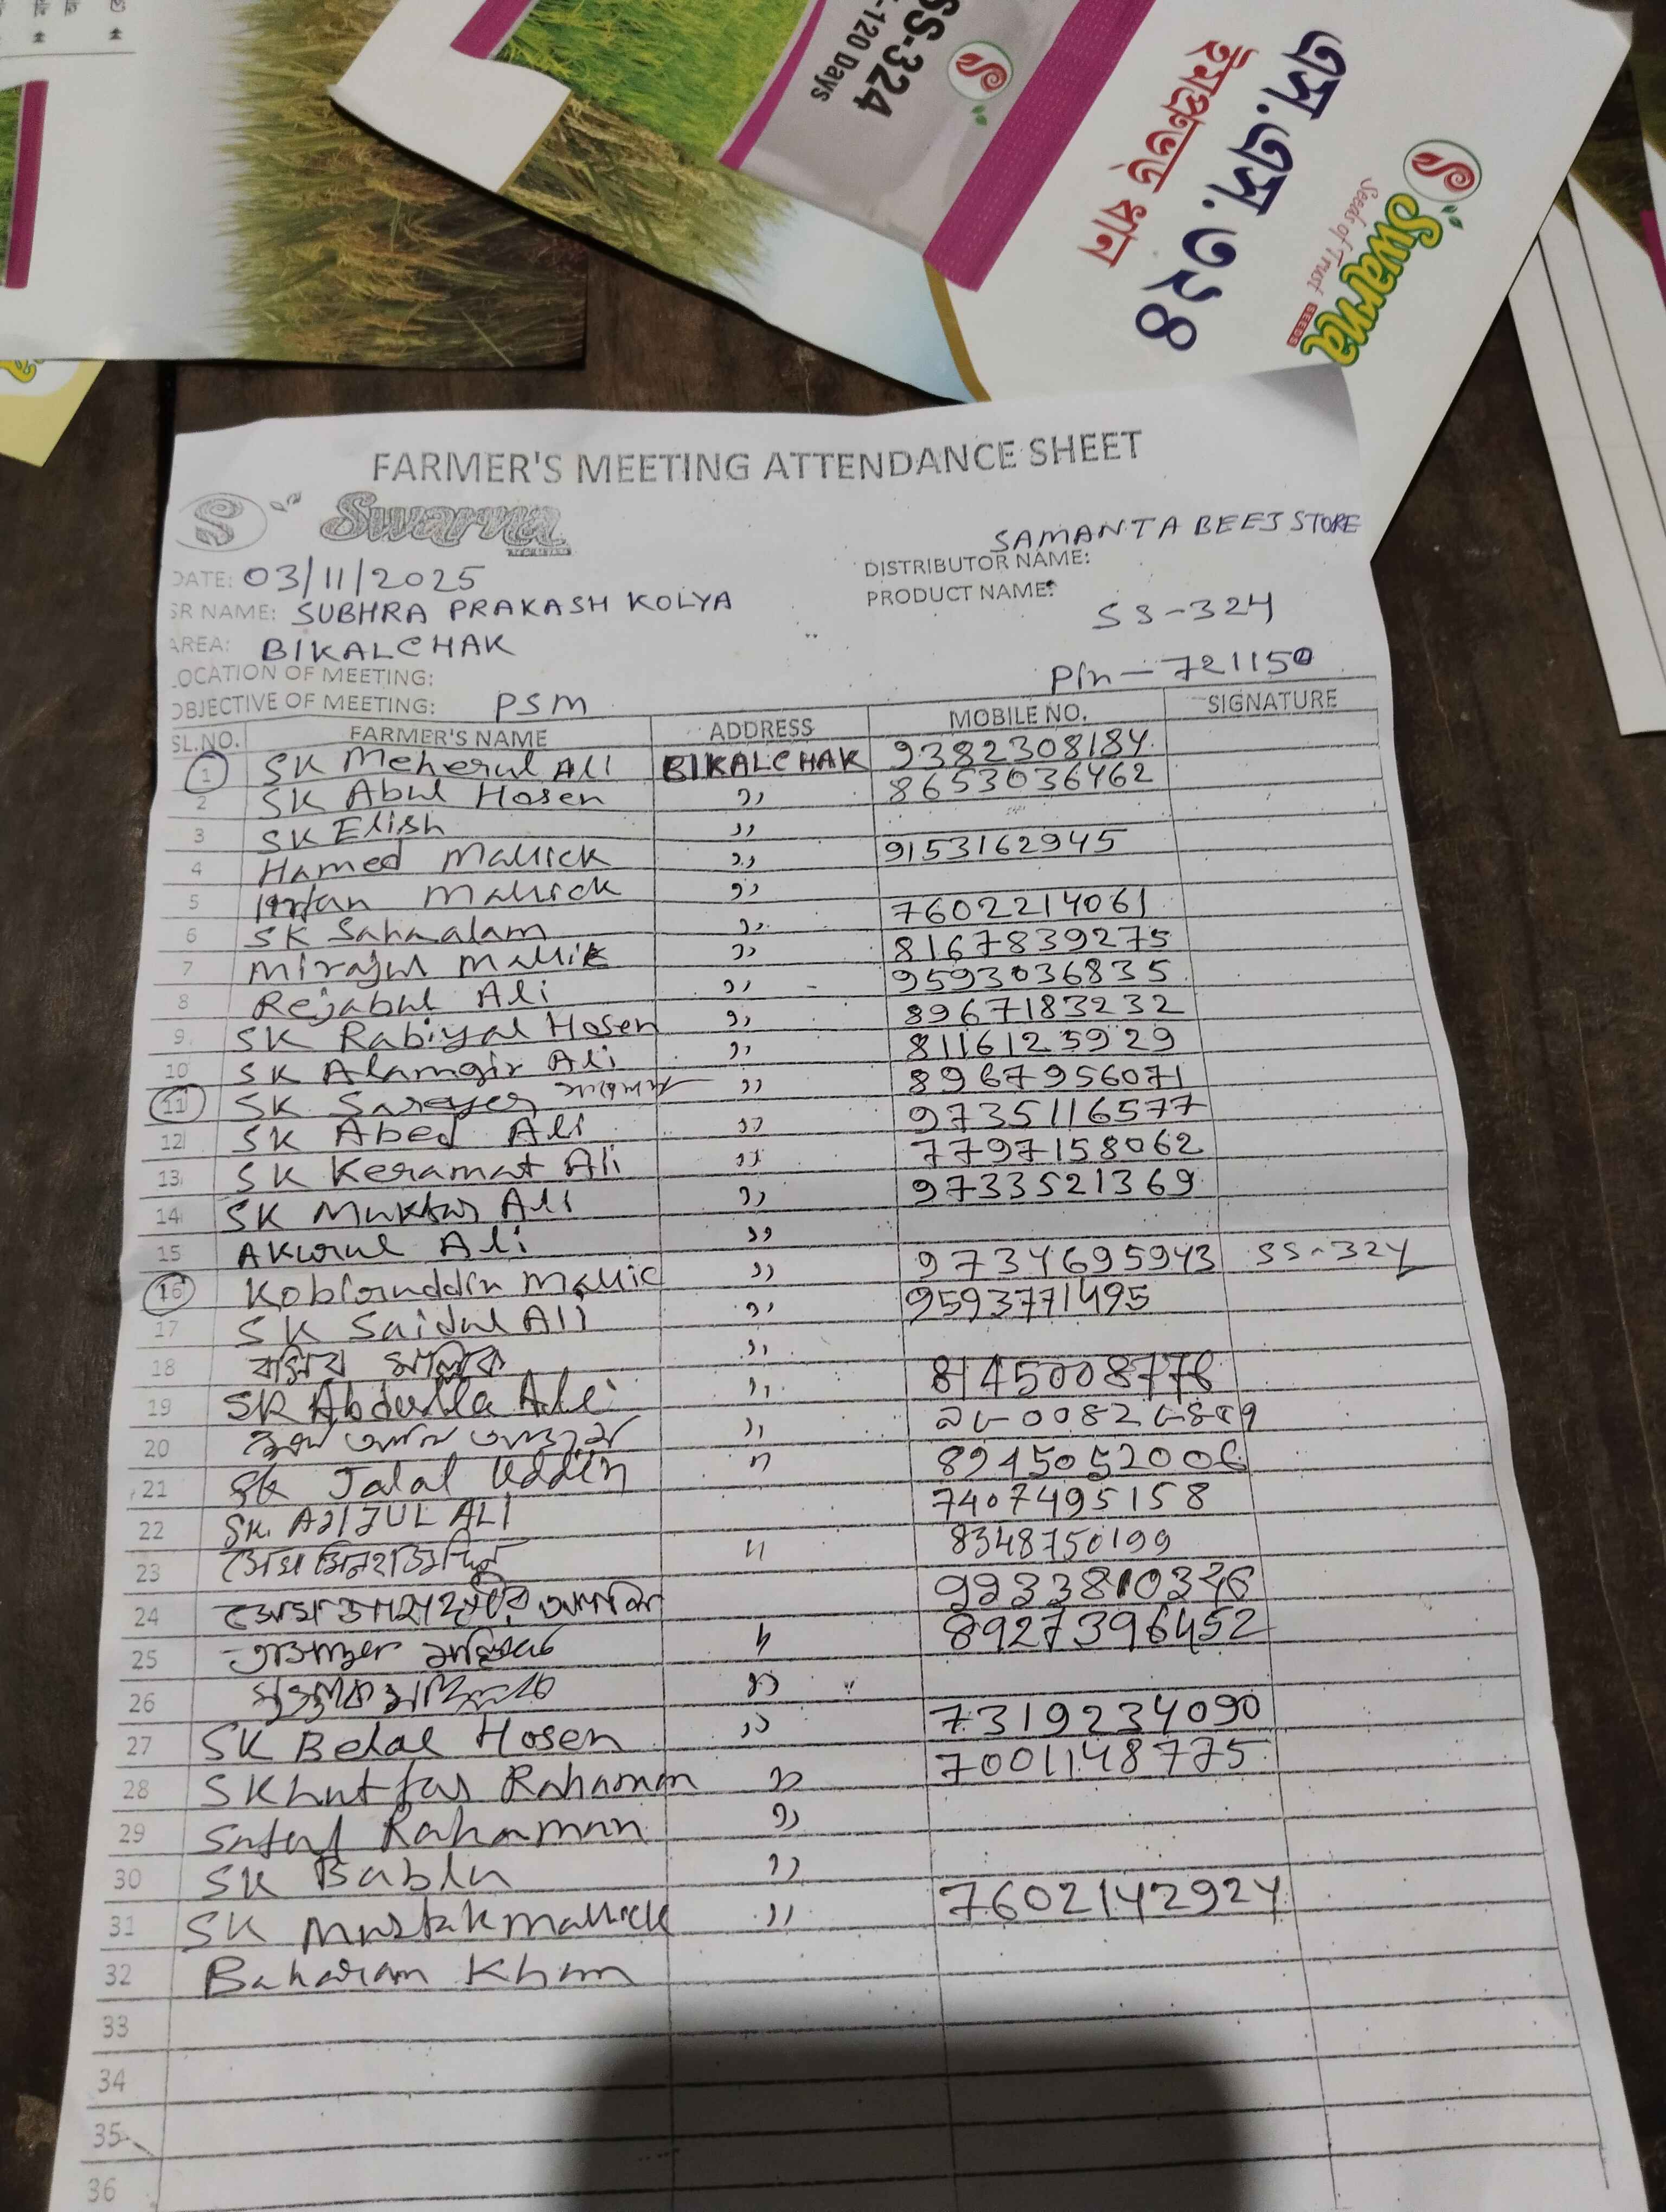 SS-324
-120 Days
এস.এস.৩২৪
হাইব্রিড ধান
Swarna
Seeds of Trust
SEEDS
FARMER'S MEETING ATTENDANCE SHEET
Swarna
SAMANTA BEEJ STORE
DATE: 03/11/2025 DISTRIBUTOR NAME:
SR NAME: SUBHRA PRAKASH KOLYA PRODUCT NAME: SS-324
AREA: BIKALCHAK
LOCATION OF MEETING: Pin-721150
OBJECTIVE OF MEETING: PSM
SL.NO. FARMER'S NAME ADDRESS MOBILE NO. SIGNATURE
1 SK Meherul Ali BIKALCHAK 9382308184
2 SK Abul Hosen ,, 8653036462
3 SK Elish ,,
4 Hamed Mallick ,, 9153162945
5 Irfan Mallick ,,
6 SK Sahaalam ,, 7602214061
7 Mirajul Mallik ,, 8167839275
8 Rejabul Ali ,, 9593036835
9 SK Rabiyal Hosen ,, 8967183232
10 SK Alamgir Ali ,, 8116125929
11 SK ,, 8967956071
12 SK Abed Ali ,, 9735116577
13 SK Keramat Ali ,, 7797158062
14 SK Muktar Ali ,, 9733521369
15 Akurul Ali ,,
16 Kobiruddin Mallic ,, 9734695943 SS-324
17 SK Saidul Ali ,, 9593771495
18 মল্লিক ,,
19 SK Abdulla Ali ,, 8145008778
20 ,,
21 SK Jalal Uddin ,,
22 SK. AJIJUL ALI 7407495158
23 সেখ মিনহাজউদ্দিন ,, 8348750199
24 সেখ
25 মল্লিক ,, 8927396452
26 ,,
27 SK Belal Hosen ,, 7319234090
28 SK Lutfar Rahaman ,, 7001148775
29 Rahaman ,,
30 SK Bablu ,,
31 SK Mustak Mallick ,, 7602142924
32 Baharam Khan
33
34
35
36